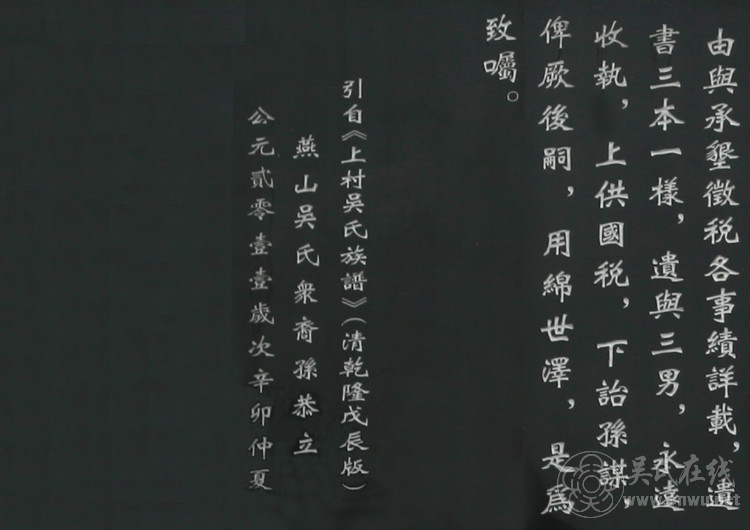 由與承墾徵税各事績詳載，遺
書三本一樣，遺與三男，永遠
收執，上供國税，下詒孫謀，
俾厥後嗣，用綿世澤，是爲
致囑。
引自《上村吳氏族譜》（清乾隆戊辰版）
燕山吳氏衆裔孫恭立
公元貳零壹壹歲次辛卯仲夏
吳氏在线